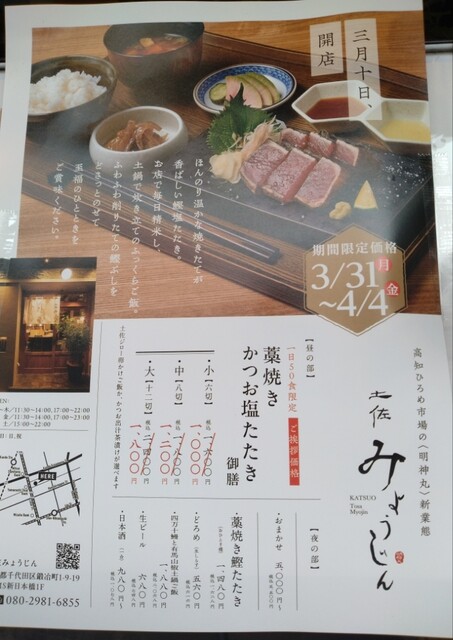 三月十日、
開店
ほんのり温かな焼きたてが
香ばしい鰹塩たたき。
お店で毎日精米し、
土鍋で炊き立てのふっくらご飯。
ふわふわ削りたての鰹ぶしを
どさっとのせて
至福のひとときを
ご賞味ください。
期間限定価格
3/31月
~4/4金
高知ひろめ市場の〈明神丸〉新業態
土佐
みょうじん
KATSUO
Tosa
Myojin
【昼の部】
一日50食限定 ご挨拶価格
藁焼き
かつお塩たたき
御膳
・小【六切】
・中【八切】
一、二〇〇円
・大【十二切】
一、八〇〇円
土佐ジロー卵かけご飯か、かつお出汁茶漬けが選べます
【夜の部】
・おまかせ 五、〇〇〇円〜
・藁焼き鰹たたき 一、四八〇円
・どろめ 五六〇円
・四万十鰻と有馬山椒土鍋ご飯
・生ビール 六八〇円
・日本酒 九八〇円〜
EN:
〜木/11:30〜14:00, 17:00〜22:00
金/11:30〜14:00, 17:00〜23:00
土/15:00〜22:00
日: 日、祝
HERE
みょうじん
都千代田区鍛冶町1-9-19
新日本橋1F
080-2981-6855